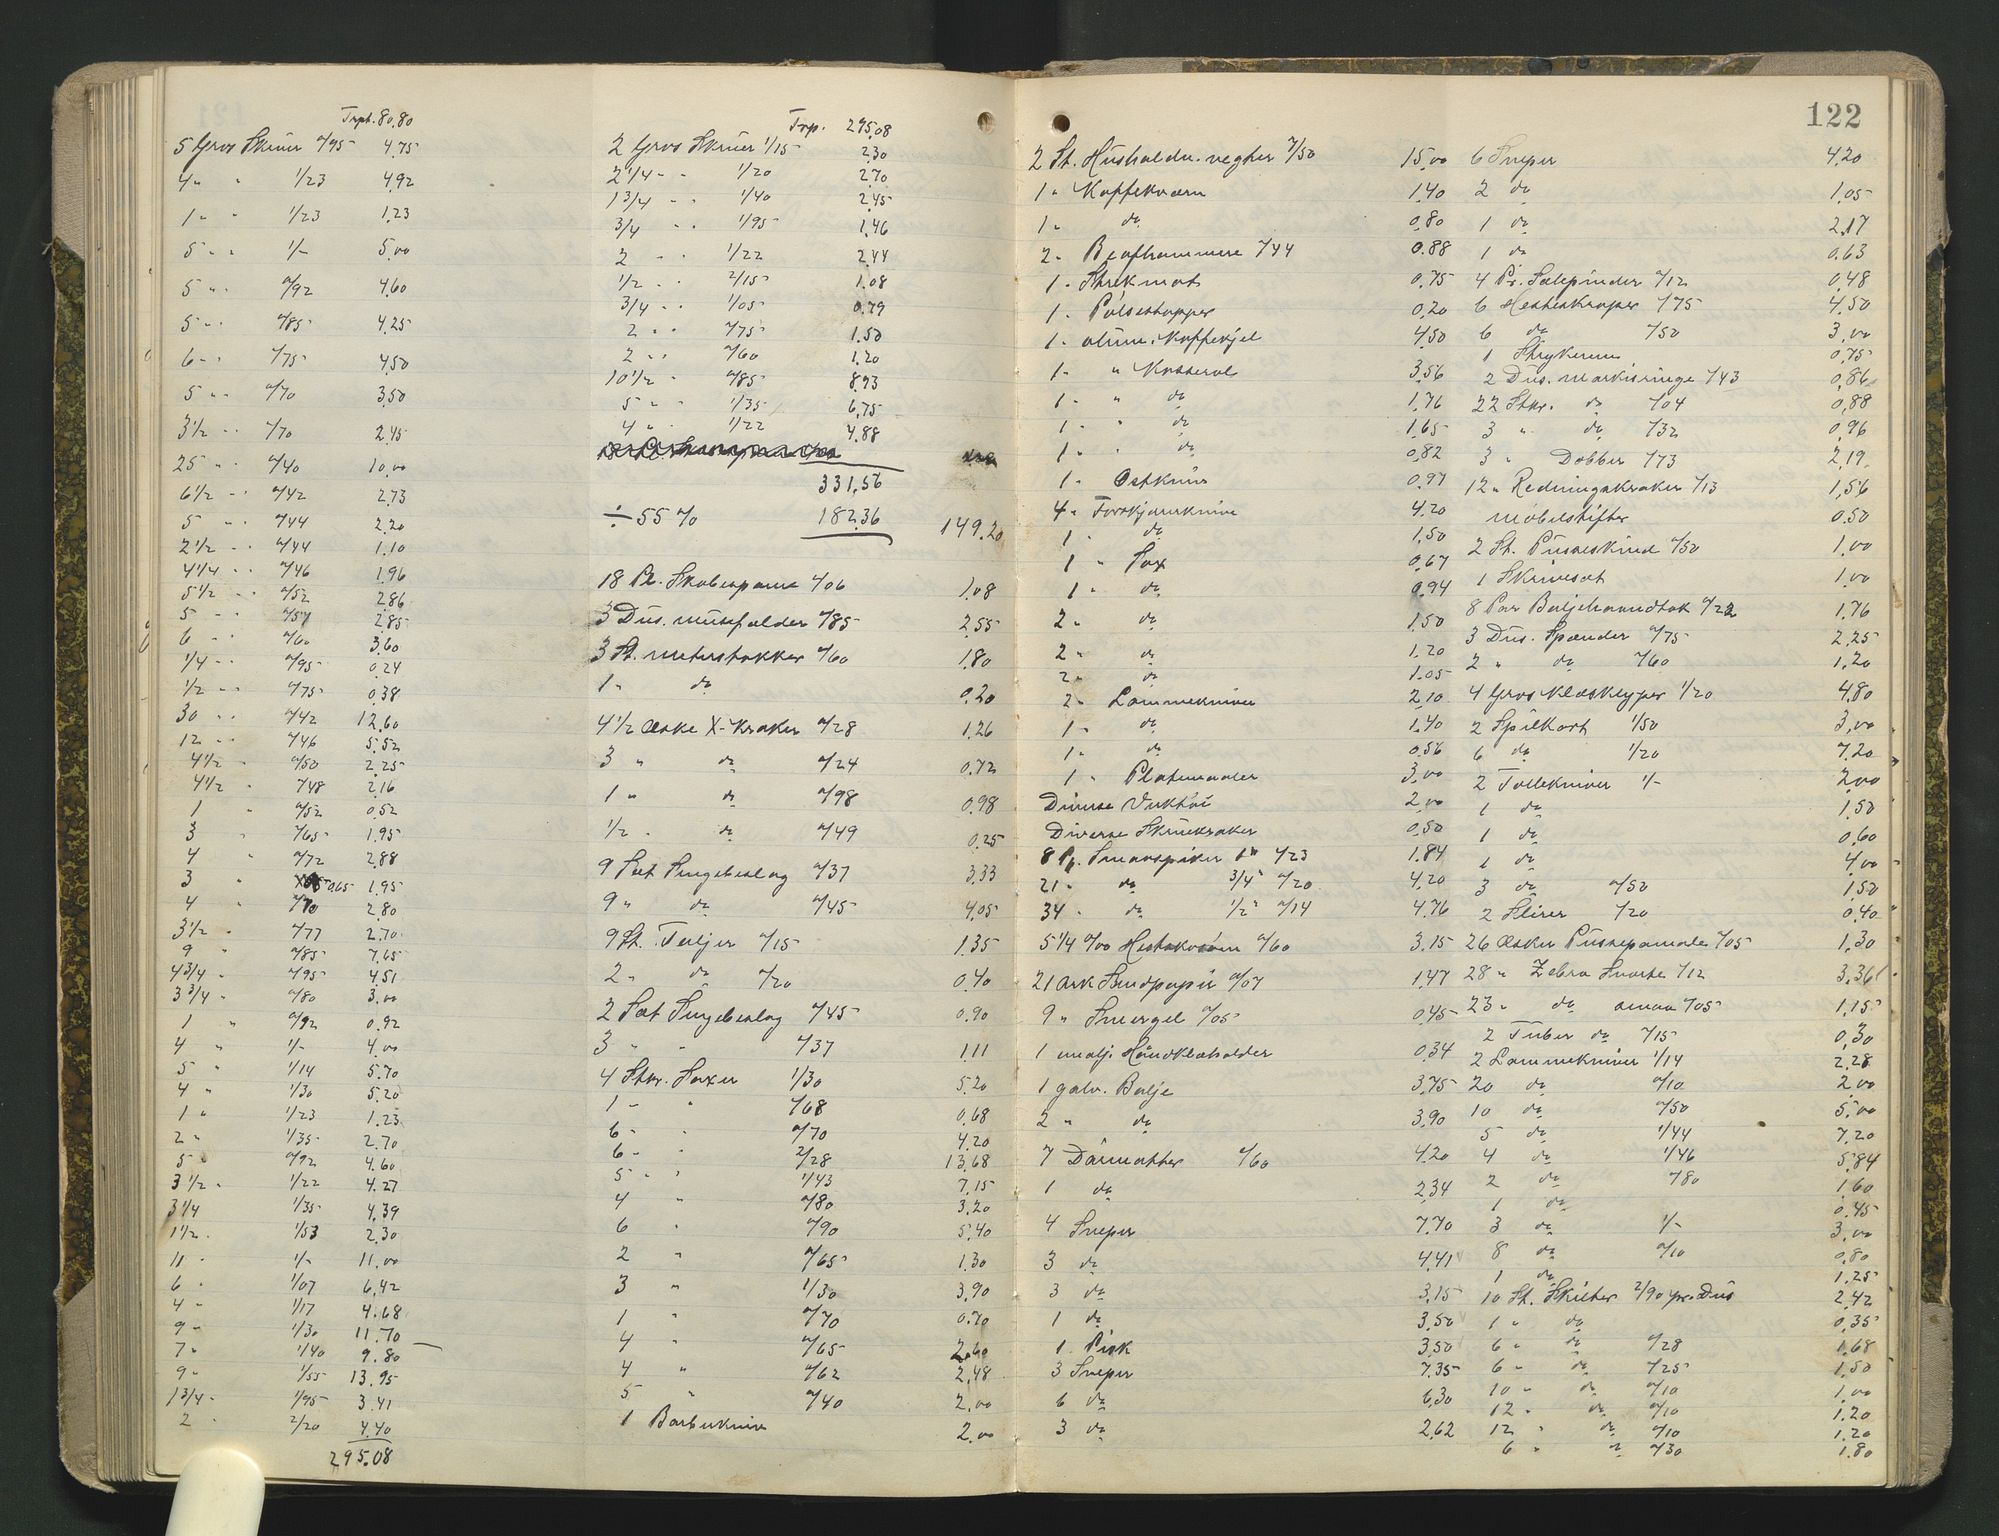 Trpt. 80.80
5 Gros Skruer a/95 4.75
4 " " 1/23 4.92
1 " " 1/23 1.23
5 " " 1/- 5.00
5 " " a/92 4.60
5 " " a/85 4.25
6 " " a/75 4.50
5 " " a/70 3.50
3 1/2 " " a/70 2.45
25 " " a/40 10.00
6 1/2 " " a/42 2.73
5 " " a/44 2.20
2 1/2 " " a/44 1.10
4 1/4 " " a/46 1.96
5 1/2 " " a/52 2.86
5 " " a/57 2.85
6 " " a/60 3.60
1/4 " " a/95 0.24
1/2 " " a/75 0.38
30 " " a/42 12.60
12 " " a/46 5.52
4 1/2 " a/50 2.25
4 1/2 " a/48 2.16
1 " a/52 0.52
3 " a/65 1.95
4 " a/72 2.88
3 " 0.65 1.95
4 " a/70 2.80
3 1/2 " a/77 2.70
9 " a/85 7.65
4 3/4 " a/95 4.51
3 3/4 " a/80 3.00
1 " a/92 0.92
4 " 1/- 4.00
5 " 1/14 5.70
4 " 1/30 5.20
1 " 1/23 1.23
2 " 1/35 2.70
5 " a/92 4.60
3 1/2 " 1/22 4.27
3 1/4 1/35 4.39
1 1/2 " 1/53 2.30
11 " 1/- 11.00
6 " 1/07 6.42
4 " 1/17 4.68
9 " 1/30 11.70
7 " 1/40 9.80
9 " 1/55 13.95
1 3/4 " 1/95 3.41
2 " 2/20 4.40
295.08
Trp. 295.08
2 Gros Skruer 1/15 2.30
2 1/4 " " 1/20 2.70
1 3/4 " " 1/40 2.45
3/4 " " 1/95 1.46
2 " " 1/22 2.44
1/2 " " 2/15 1.08
3/4 " " 1/05 0.79
2 " " a/75 1.50
2 " " a/60 1.20
10 1/2 " a/85 8.93
5 " " 1/35 6.75
4 " " 1/22 4.88
331.56
÷ 55 % 182.36 149.20
18 Pk. a/06 1.08
3 Dus. musefælder a/85 2.55
3 St. meterstokker a/60 1.80
1 " do 0.20
4 1/2 Æske X-kroker a/28 1.26
3 " do a/24 0.72
1 " do a/98 0.98
1/2 " do a/49 0.25
9 Sæt Ringebeslag a/37 3.33
9 " do a/45 4.05
9 St. Teljer a/15 1.35
2 " do a/20 0.40
2 Sæt Ringebeslag a/45 0.90
3 " " a/37 1.11
4 Stkr. Saxer 1/30 5.20
1 " " a/68 0.68
6 " " a/70 4.20
6 " " 2/28 13.68
5 " " 1/43 7.15
4 " a/80 3.20
6 " a/90 5.40
2 " a/65 1.30
3 " 1/30 3.90
1 " a/70 0.70
4 " a/65 2.60
4 " a/62 2.48
5 " a/40 2.00
1 Barberkniv 2.00
122
2 St. Husholdn. vegter 7/50 15.00
1 " Kaffekværn 1.40
1 " do 0.80
2 " Beafhammere a/44 0.88
1 " 0.75
1 " Pølsestopper 0.20
1 " alum. Kaffekjel 4.50
1 " " Kasserol 3.56
1 " " do 1.76
1 " " do 1.65
1 " " do 0.82
1 " Ostkniv 0.97
4 " Forskjærknive 4.20
1 " do 1.50
1 " Sax 0.67
1 " do 0.94
2 " do 1.50
2 " do 1.20
2 " do 1.05
2 " Lommekniver 2.10
1 " do 1.40
1 " do 0.56
1 " Platemaaler 3.00
Diverse Verktøi 2.00
Diverse Skruekroker 0.50
8 Pk. 1" a/23 1.84
21 " do 3/4" a/20 4.20
34 " do 1/2" a/14 4.76
5 1/4 0/00 Hesteskosøm a/60 3.15
21 ark Sandpapir a/07 1.47
9 " Smergel a/05 0.45
1 emalj. Håndklæholder 0.34
1 galv. Balje 3.75
2 " do 3.90
7 Dørmatter a/60 4.20
1 do 2.34
4 Sneper 7.70
3 do 4.41
3 do 3.15
1 do 3.50
1 Pisk 3.50
3 Sneper 7.35
6 do 6.30
3 do 2.62
6 Sneper 4.20
2 do 1.05
1 do 2.17
1 do 0.63
4 Pr. Sælepinder a/12 0.48
6 Hesteskraper a/75 4.50
6 do a/50 3.00
1 Strykerem 0.75
2 Dus. markisringe a/43 0.86
22 Stkr. do a/04 0.88
3 " do a/32 0.96
3 " Dobber a/73 2.19
12 " Redningskroker a/13 1.56
Møbelstifter 0.50
2 St. Pusseskind a/50 1.00
1 Skrivesæt 1.00
8 Par Baljehaandtak a/22 1.76
3 Dus. Spænder a/75 2.25
2 " do a/60 1.20
4 Gros Klæsklyper 1/20 4.80
2 Spilkort 1/50 3.00
6 do 1/20 7.20
2 Tollekniver 1/- 2.00
1 do 1.50
1 do 0.60
1 do 4.00
3 do a/50 1.50
2 Slirer a/20 0.40
26 Æsker Pussepomade a/05 1.30
28 " Zebra Sværte a/12 3.36
23 " do smaa a/05 1.15
2 Tuber do a/15 0.30
2 Lommekniver 1/14 2.28
20 do a/10 2.00
10 do a/50 5.00
5 do 1/44 7.20
4 do 1/46 5.84
2 do a/80 1.60
1 do 0.45
3 do 1/- 3.00
8 do a/10 0.80
1 do 1.25
10 St. Skilter 2/90 pr. Dus 2.42
1 " do 0.35
6 " do a/28 1.68
6 " do a/25 1.50
10 " do a/10 1.00
12 " do a/10 1.20
12 " do a/10 1.20
6 " " a/30 1.80